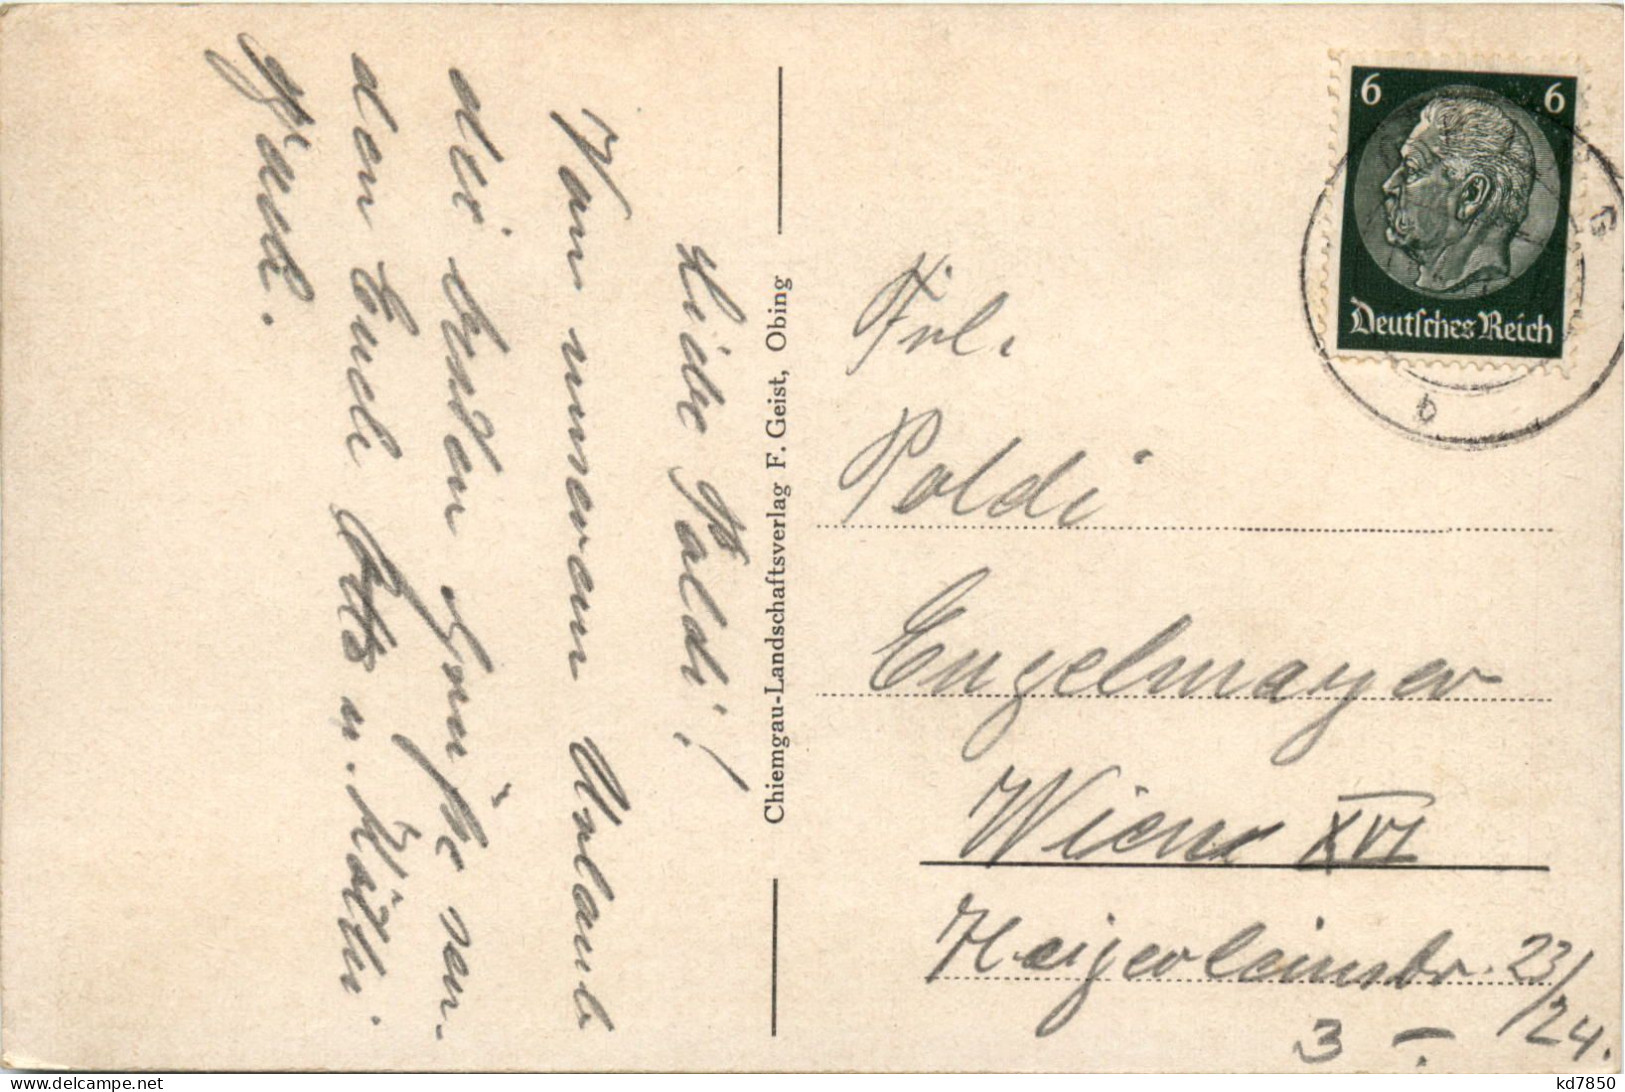 Liebe Poldi!
Von unserem Urlaub
die besten Grüße sen-
den Euch Otto u.
Gusti.
Chiemgau-Landschaftsverlag F. Geist, Obing
6 6
Deutsches Reich
b
Frl.
Poldi
Engelmayer
Wien XVI
23/24.
3 -
kd7850